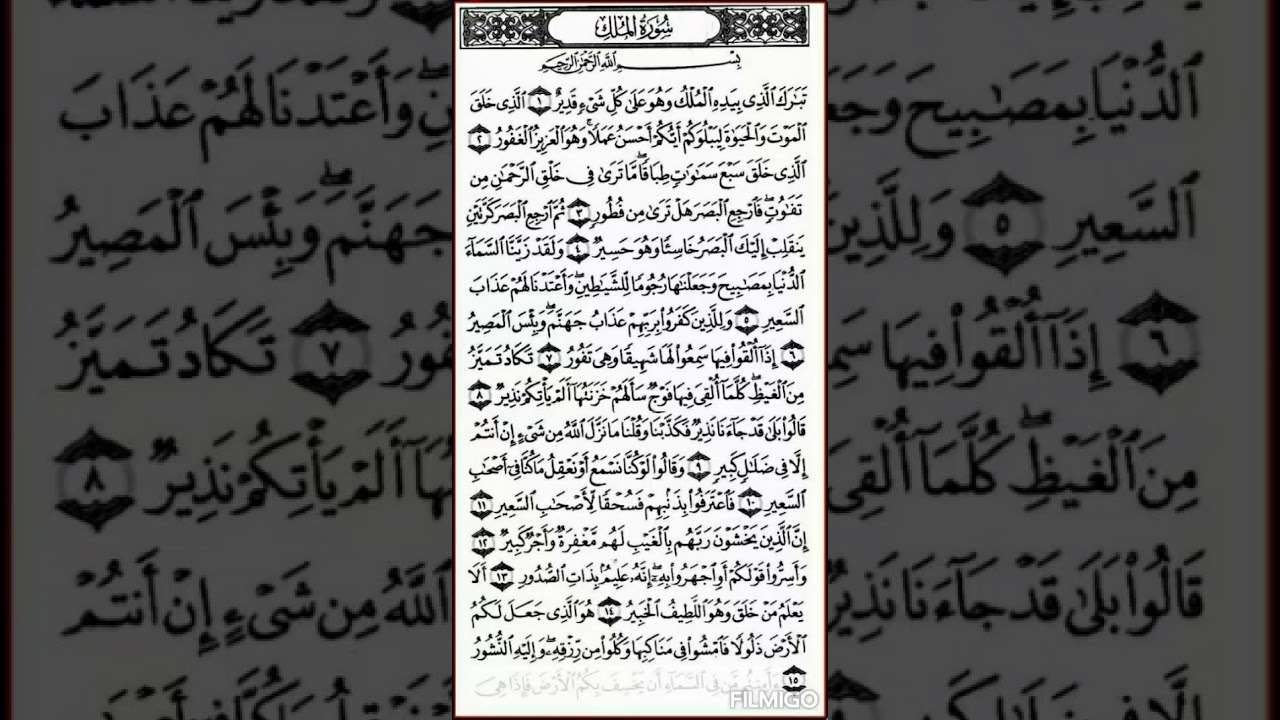 سُورَةُ الْمُلْكِ
بِسْمِ اللَّهِ الرَّحْمَٰنِ الرَّحِيمِ
تَبَٰرَكَ الَّذِى بِيَدِهِ الْمُلْكُ وَهُوَ عَلَىٰ كُلِّ شَىْءٍ قَدِيرٌ ١ الَّذِى خَلَقَ
الْمَوْتَ وَالْحَيَوٰةَ لِيَبْلُوَكُمْ أَيُّكُمْ أَحْسَنُ عَمَلًا ۚ وَهُوَ الْعَزِيزُ الْغَفُورُ ٢
الَّذِى خَلَقَ سَبْعَ سَمَٰوَٰتٍ طِبَاقًا ۖ مَّا تَرَىٰ فِى خَلْقِ الرَّحْمَٰنِ مِن
تَفَٰوُتٍ ۖ فَارْجِعِ الْبَصَرَ هَلْ تَرَىٰ مِن فُطُورٍ ٣ ثُمَّ ارْجِعِ الْبَصَرَ كَرَّتَيْنِ
يَنقَلِبْ إِلَيْكَ الْبَصَرُ خَاسِئًا وَهُوَ حَسِيرٌ ٤ وَلَقَدْ زَيَّنَّا السَّمَآءَ
الدُّنْيَا بِمَصَٰبِيحَ وَجَعَلْنَٰهَا رُجُومًا لِّلشَّيَٰطِينِ ۖ وَأَعْتَدْنَا لَهُمْ عَذَابَ
السَّعِيرِ ٥ وَلِلَّذِينَ كَفَرُوا۟ بِرَبِّهِمْ عَذَابُ جَهَنَّمَ ۖ وَبِئْسَ الْمَصِيرُ
٦ إِذَآ أُلْقُوا۟ فِيهَا سَمِعُوا۟ لَهَا شَهِيقًا وَهِىَ تَفُورُ ٧ تَكَادُ تَمَيَّزُ
مِنَ الْغَيْظِ ۖ كُلَّمَآ أُلْقِىَ فِيهَا فَوْجٌ سَأَلَهُمْ خَزَنَتُهَآ أَلَمْ يَأْتِكُمْ نَذِيرٌ ٨
قَالُوا۟ بَلَىٰ قَدْ جَآءَنَا نَذِيرٌ فَكَذَّبْنَا وَقُلْنَا مَا نَزَّلَ اللَّهُ مِن شَىْءٍ إِنْ أَنتُمْ
إِلَّا فِى ضَلَٰلٍ كَبِيرٍ ٩ وَقَالُوا۟ لَوْ كُنَّا نَسْمَعُ أَوْ نَعْقِلُ مَا كُنَّا فِىٓ أَصْحَٰبِ
السَّعِيرِ ١٠ فَاعْتَرَفُوا۟ بِذَنۢبِهِمْ فَسُحْقًا لِّأَصْحَٰبِ السَّعِيرِ ١١
إِنَّ الَّذِينَ يَخْشَوْنَ رَبَّهُم بِالْغَيْبِ لَهُم مَّغْفِرَةٌ وَأَجْرٌ كَبِيرٌ ١٢
وَأَسِرُّوا۟ قَوْلَكُمْ أَوِ اجْهَرُوا۟ بِهِۦٓ ۖ إِنَّهُۥ عَلِيمٌۢ بِذَاتِ الصُّدُورِ ١٣ أَلَا
يَعْلَمُ مَنْ خَلَقَ وَهُوَ اللَّطِيفُ الْخَبِيرُ ١٤ هُوَ الَّذِى جَعَلَ لَكُمُ
الْأَرْضَ ذَلُولًا فَامْشُوا۟ فِى مَنَاكِبِهَا وَكُلُوا۟ مِن رِّزْقِهِۦ ۖ وَإِلَيْهِ النُّشُورُ
١٥ ءَأَمِنتُم مَّن فِى السَّمَآءِ أَن يَخْسِفَ بِكُمُ الْأَرْضَ فَإِذَا هِىَ
FILMIGO